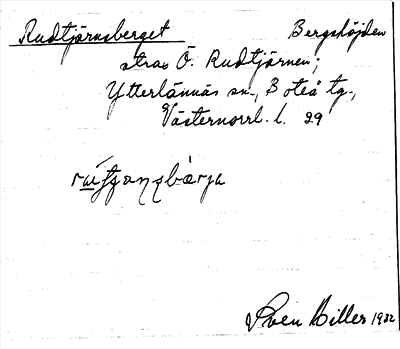 Rudtjärnsberget Bergshöjden
strax Ö. Rudtjärnen;
Ytterlännäs sn., Boteå tg.,
Västernorrl. l. 29
Sven Hiller 1932